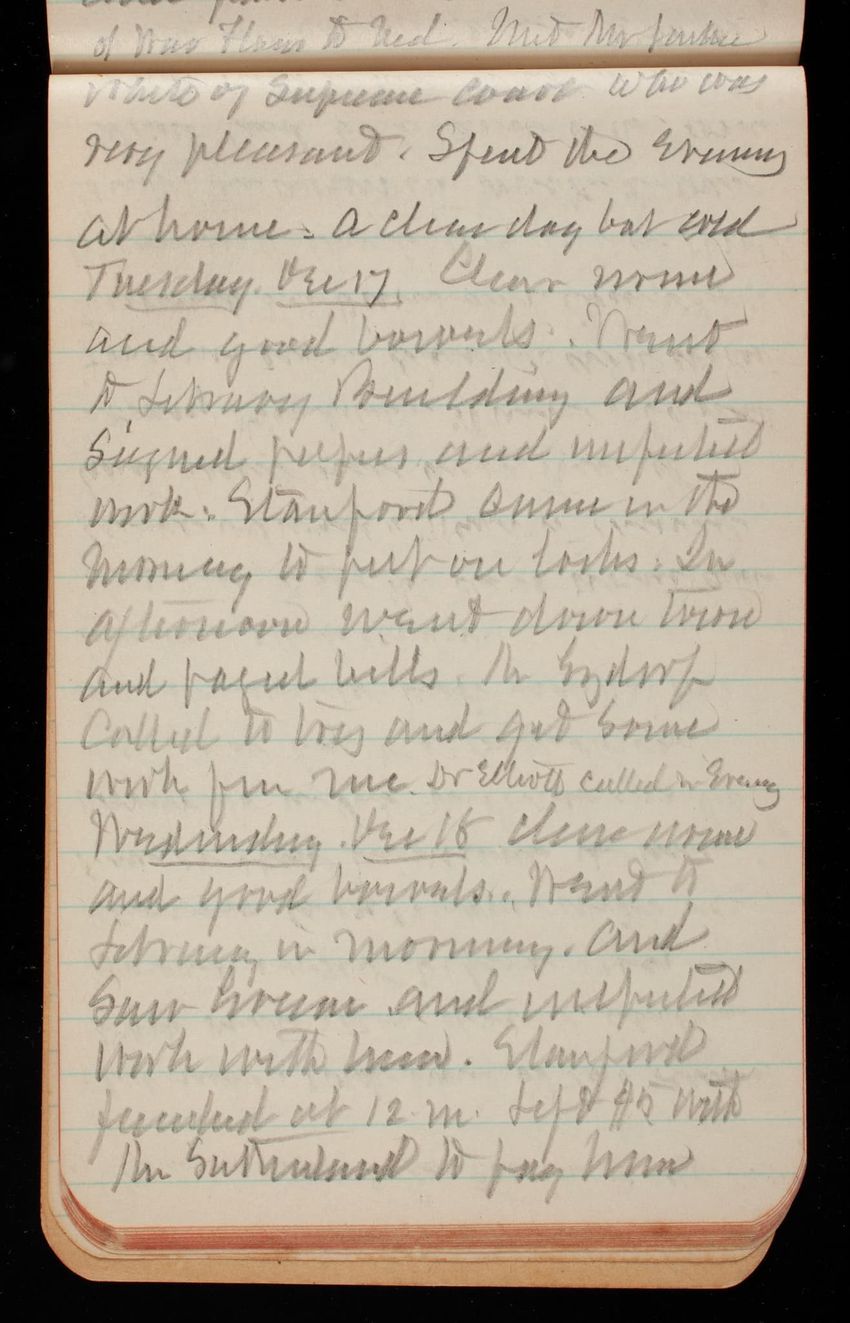 of War Thom to Ned. Met Mr Justice
White of Supreme Court who was
very pleasant. Spent the Evening
at home. A clear day but cold
Tuesday. Dec 17. Clear norm
and good bowels. Went
to Library Building and
Signed papers and inspected
work. Stanford came in the
Morning to put on locks. In
afternoon went down town
and payed bills. Mr Gzdorf
Called to try and get some
work from me. Dr Elliott called in Eveng
Wednesday. Dec 18 clear norm
and good bowels. Went to
Library in morning. and
Saw Green and inspected
work with him. Stanford
finished at 12 m. Left $5 with
Mr Sutherland to pay him